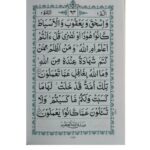 وَإِسْحٰقَ وَيَعْقُوبَ وَالْأَسْبَاطَ
كَانُوا هُودًا أَوْ نَصٰرٰى قُلْ ءَأَنْتُمْ
أَعْلَمُ أَمِ اللّٰهُ وَمَنْ أَظْلَمُ مِمَّنْ
كَتَمَ شَهَادَةً عِنْدَهُ مِنَ اللّٰهِ
وَمَا اللّٰهُ بِغَافِلٍ عَمَّا تَعْمَلُونَ
تِلْكَ أُمَّةٌ قَدْ خَلَتْ لَهَا مَا
كَسَبَتْ وَلَكُمْ مَا كَسَبْتُمْ وَلَا
تُسْأَلُونَ عَمَّا كَانُوا يَعْمَلُونَ